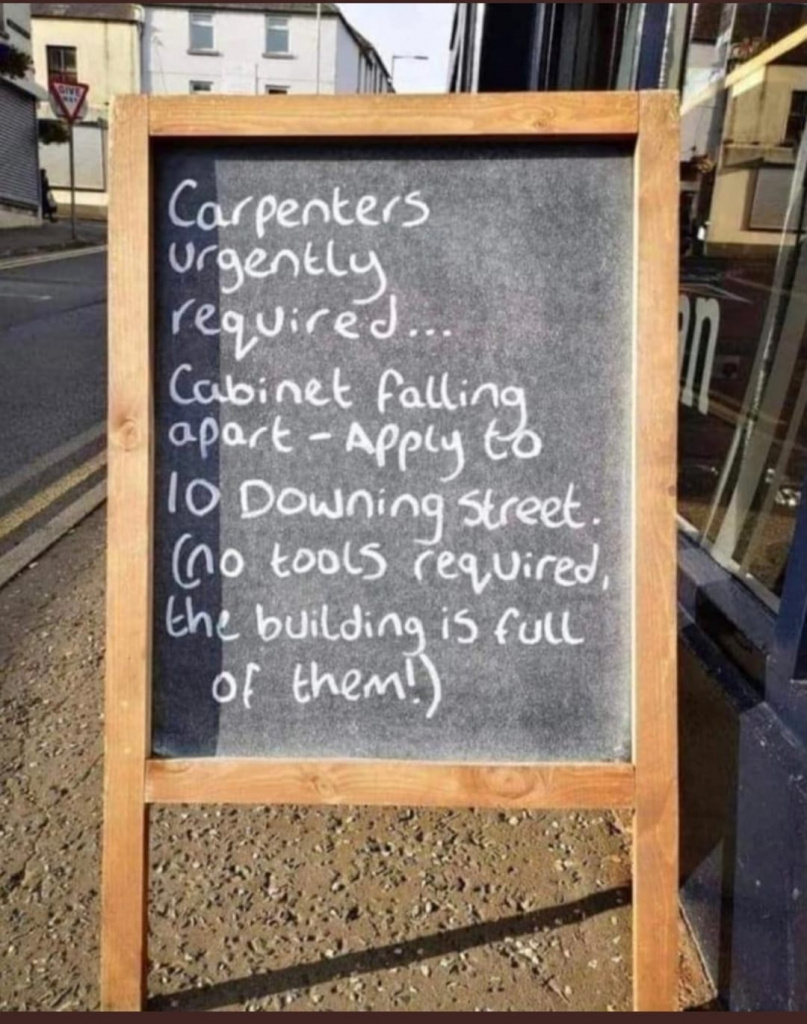 GIVE WAY
Carpenters
urgently
required...
Cabinet falling
apart - Apply to
10 Downing Street.
(no tools required,
the building is full
of them!)